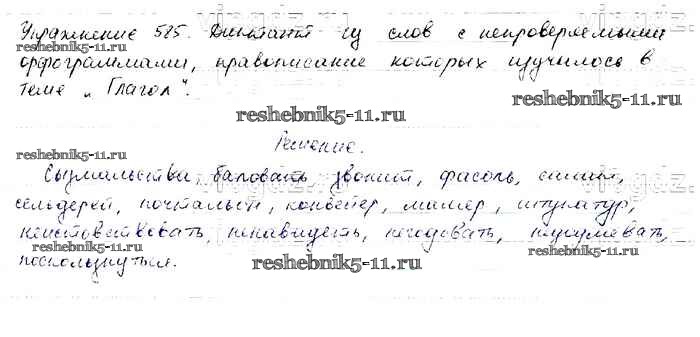 Упражнение 585. Диктант из слов с непроверяемыми
орфограммами, правописание которых изучилось в
теме „Глагол".
reshebnik5-11.ru
reshebnik5-11.ru
Решение.
reshebnik5-11.ru
Сызмальства, баловать, звонит, фасоль,
сельдерей, почтальон, конвейер, маляр, штукатур,
неистовствовать, ненавидеть, негодовать, недоумевать,
reshebnik5-11.ru
reshebnik5-11.ru
reshebnik5-11.ru
поскользнуться.